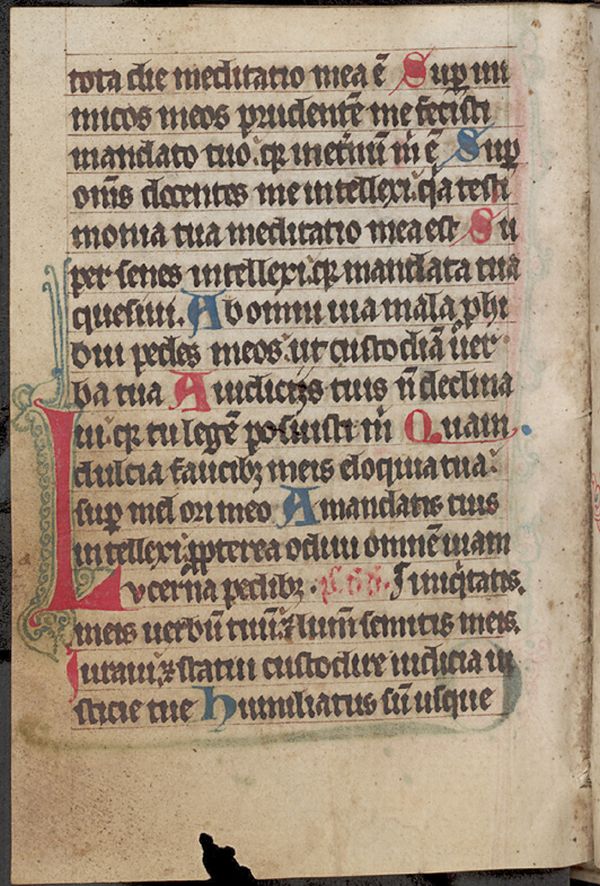 tota die meditatio mea ē Sup ini
micos meos prudentē me fecisti
mandato tuo. qr inet̄nū m̄ ē Sup
om̄s docentes me intellexi. qa testi
monia tua meditatio mea est Su
per senes intellexi. qr mandata tua
quesiui. Ab omni uia mala phi
bui pedes meos. ut custodiā uer
ba tua A iudicijs tuis n̄ declina
ui. qr tu legē posuisti m̄ Quam
dulcia faucibꝫ meis eloquia tua:
sup mel ori meo A mandatis tuis
intellexi. ppterea odiui omnē uiam
Lucerna pedibꝫ. iniqitatis.
meis uerbū tuū. ⁊ lum̄ semitis meis.
Iuraui. ⁊ statui custodire iudicia iu
sticie tue Humiliatus sū usque